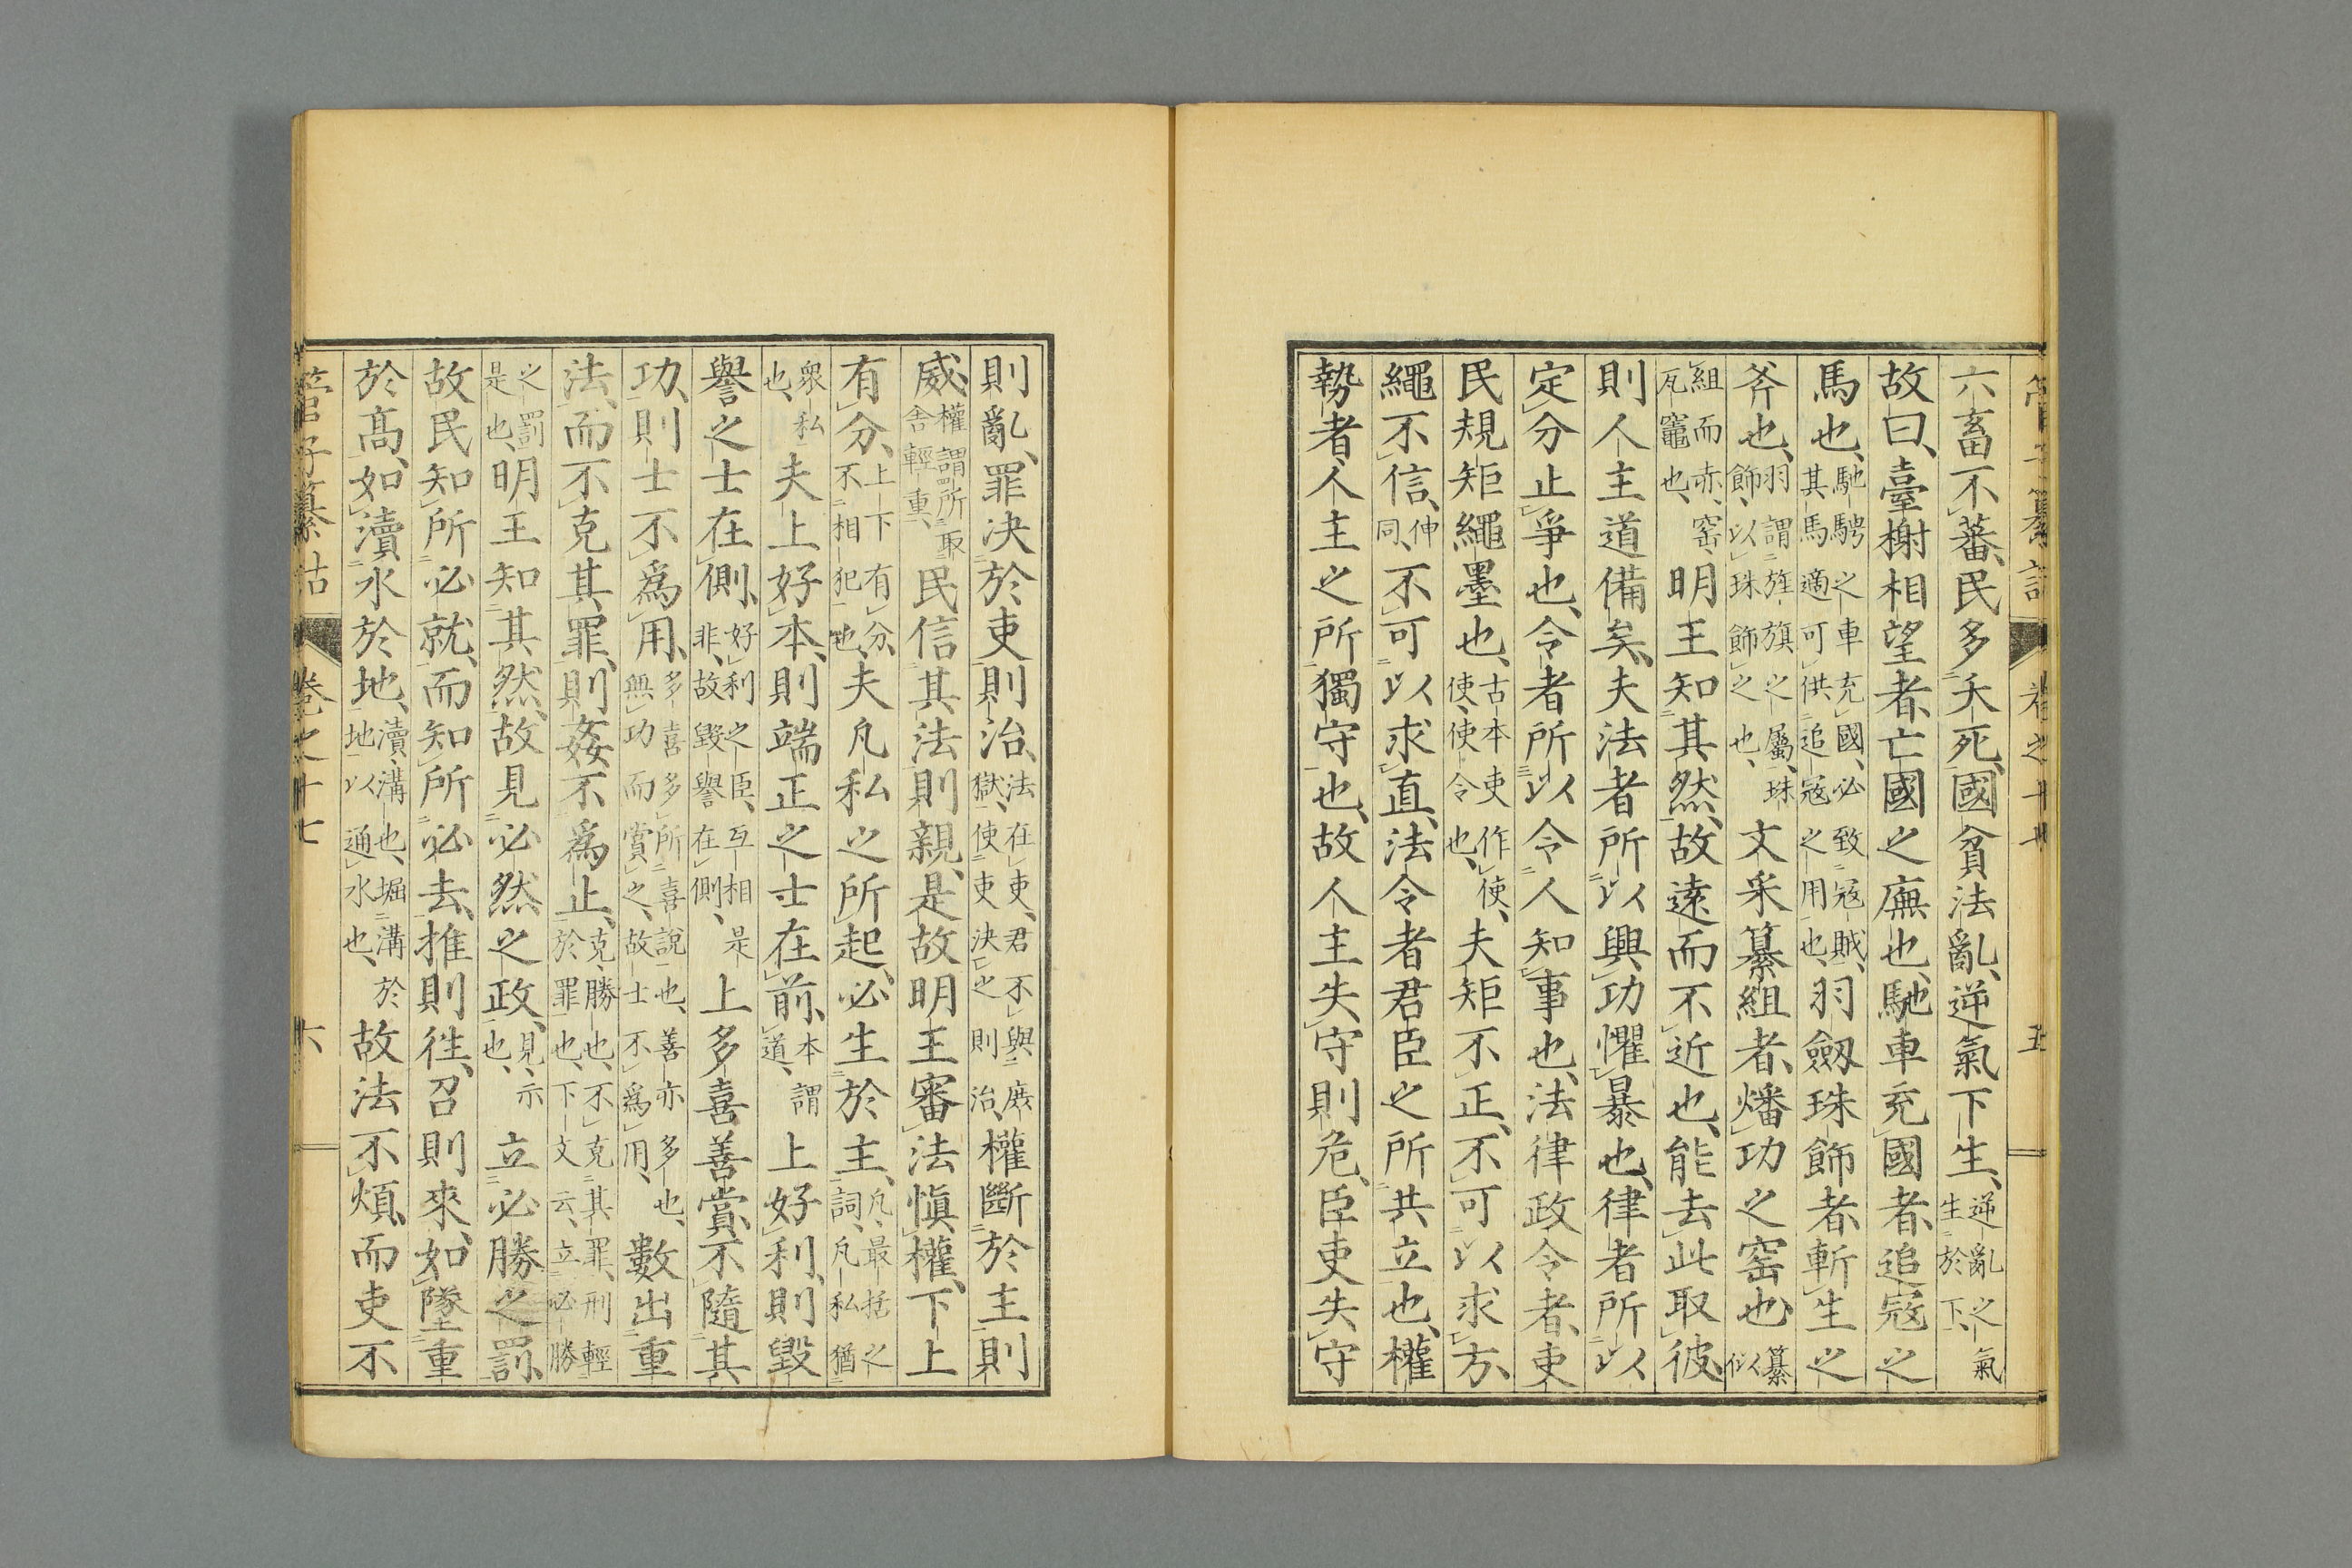 六畜不蕃、民多夭死、國貧法亂、逆氣下生、逆亂之氣生於下、
故曰、臺榭相望者、亡國之廡也、馳車充國者、追寇之
馬也、馳騁之車充國、必致寇賊、其馬適可供追寇之用也、羽劔珠飾者、斬生之
斧也、羽謂旌旗之屬、珠飾、以珠飾之也、文采纂組者、燔功之窑也、纂似
組而赤、窑、瓦竈也、明王知其然、故遠而不近也、能去此取彼、
則人主道備矣、夫法者所以興功懼暴也、律者所以
定分止爭也、令者所以令人知事也、法律政令者、吏
民規矩繩墨也、古本吏作使、使、使令也、夫矩不正、不可以求方、
繩不信、伸同、不可以求直、法令者君臣之所共立也、權
勢者、人主之所獨守也、故人主失守則危、臣吏失守
則亂、罪決於吏則治、法在吏、君不與廄獄、使吏決之則治、權斷於主則
威、權謂所取舍輕重、民信其法則親、是故明王審法愼權、下上
有分、上下有分、不相犯也、夫凡私之所起、必生於主、凡、最括之詞、凡私猶
衆私也、夫上好本、則端正之士在前、本謂道、上好利、則毀
譽之士在側、好利之臣、互相是非、故毀譽在側、上多喜善賞、不隨其
功、則士不爲用、多喜多所喜說也、善亦多也、無功而賞之、故士不爲用、數出重
法、而不克其罪、則姦不爲止、克、勝也、不克其罪、刑輕於罪也、下文云、立必勝
之罰是也、明王知其然、故見必然之政、見、示也、立必勝之罰、
故民知所必就、而知所必去、推則往、召則來、如墜重
於高、如瀆水於地、瀆、溝也、堀溝於地以通水也、故法不煩、而吏不
管子纂詁 卷之十七 六